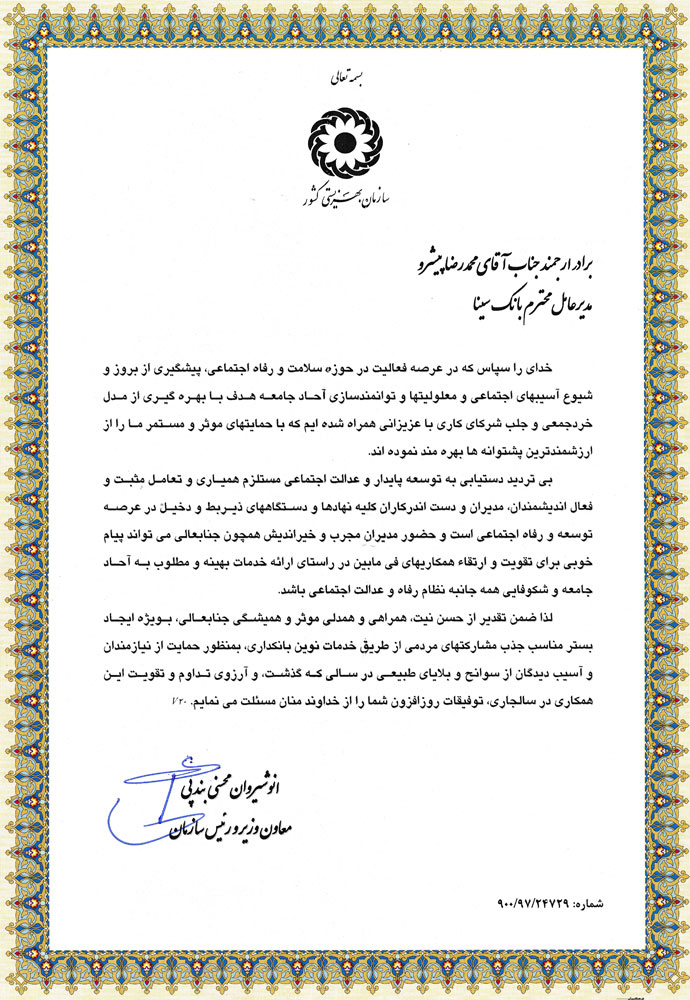 بسمه تعالی
سازمان بهزیستی کشور
برادر ارجمند جناب آقای محمدرضا پیشرو
مدیرعامل محترم بانک سینا
خدای را سپاس که در عرصه فعالیت در حوزه سلامت و رفاه اجتماعی، پیشگیری از بروز و
شیوع آسیبهای اجتماعی و معلولیتها و توانمندسازی آحاد جامعه هدف با بهره گیری از مدل
خردجمعی و جلب شرکای کاری با عزیزانی همراه شده ایم که با حمایتهای موثر و مستمر ما را از
ارزشمندترین پشتوانه ها بهره مند نموده اند.
بی تردید دستیابی به توسعه پایدار و عدالت اجتماعی مستلزم همیاری و تعامل مثبت و
فعال اندیشمندان، مدیران و دست اندرکاران کلیه نهادها و دستگاههای ذیربط و دخیل در عرصه
توسعه و رفاه اجتماعی است و حضور مدیران مجرب و خیراندیش همچون جنابعالی می تواند پیام
خوبی برای تقویت و ارتقاء همکاریهای فی مابین در راستای ارائه خدمات بهینه و مطلوب به آحاد
جامعه و شکوفایی همه جانبه نظام رفاه و عدالت اجتماعی باشد.
لذا ضمن تقدیر از حسن نیت، همراهی و همدلی موثر و همیشگی جنابعالی، بویژه ایجاد
بستر مناسب جذب مشارکتهای مردمی از طریق خدمات نوین بانکداری، بمنظور حمایت از نیازمندان
و آسیب دیدگان از سوانح و بلایای طبیعی در سالی که گذشت، و آرزوی تداوم و تقویت این
همکاری در سالجاری، توفیقات روزافزون شما را از خداوند منان مسئلت می نمایم. ۱/۲۰
انوشیروان محسنی بندپی
معاون وزیر و رئیس سازمان
شماره: ۹۰۰/۹۷/۲۴۷۲۹